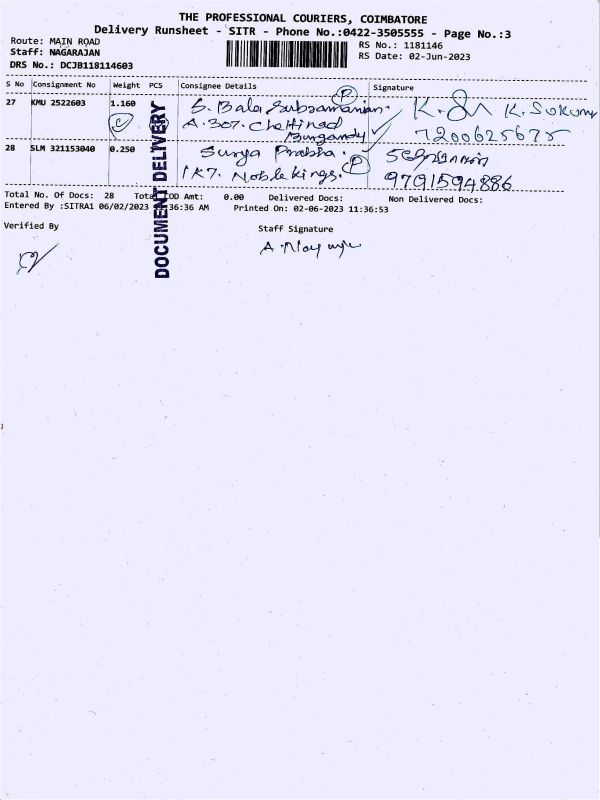 THE PROFESSIONAL COURIERS, COIMBATORE
Delivery Runsheet - SITR - Phone No.:0422-3505555 - Page No.:3
Route: MAIN ROAD
Staff: NAGARAJAN
DRS No.: DCJB118114603
RS No.: 1181146
RS Date: 02-Jun-2023
S No Consignment No Weight PCS Consignee Details Signature
27 KMU 2522603 1.160 S. Bala Subramanian. K. K. Sukumar
A. 307. Chettinad 7200625675
Burgandy
28 SLM 321153040 0.250 Surya Prabha.
1K7. Noble kings. 9791594886
DOCUMENT DELIVERY
Total No. Of Docs: 28 Total COD Amt: 0.00 Delivered Docs: Non Delivered Docs:
Entered By :SITRA1 06/02/2023 36:36 AM Printed On: 02-06-2023 11:36:53
Verified By Staff Signature